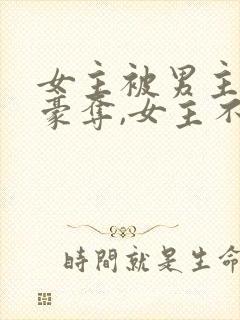 女主被男主
豪夺,女主不
時間就是生命